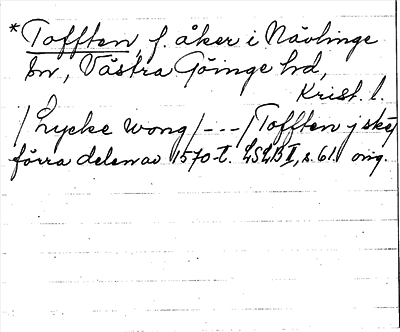 *Tofften, f. åker i Nävlinge
sn, Västra Göinge hd,
Krist. l.
/Lycke wong/---/Tofften j skej
förra delen av 1570-t. LSLB II, s. 61. orig.